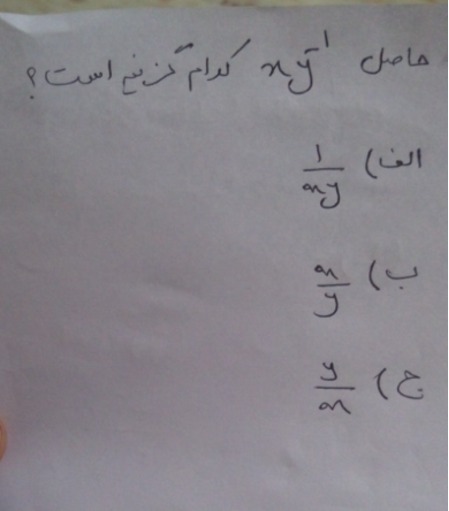 حاصل xy⁻¹ کدام گزینه است؟
الف) 1/xy
ب) x/y
ج) y/x